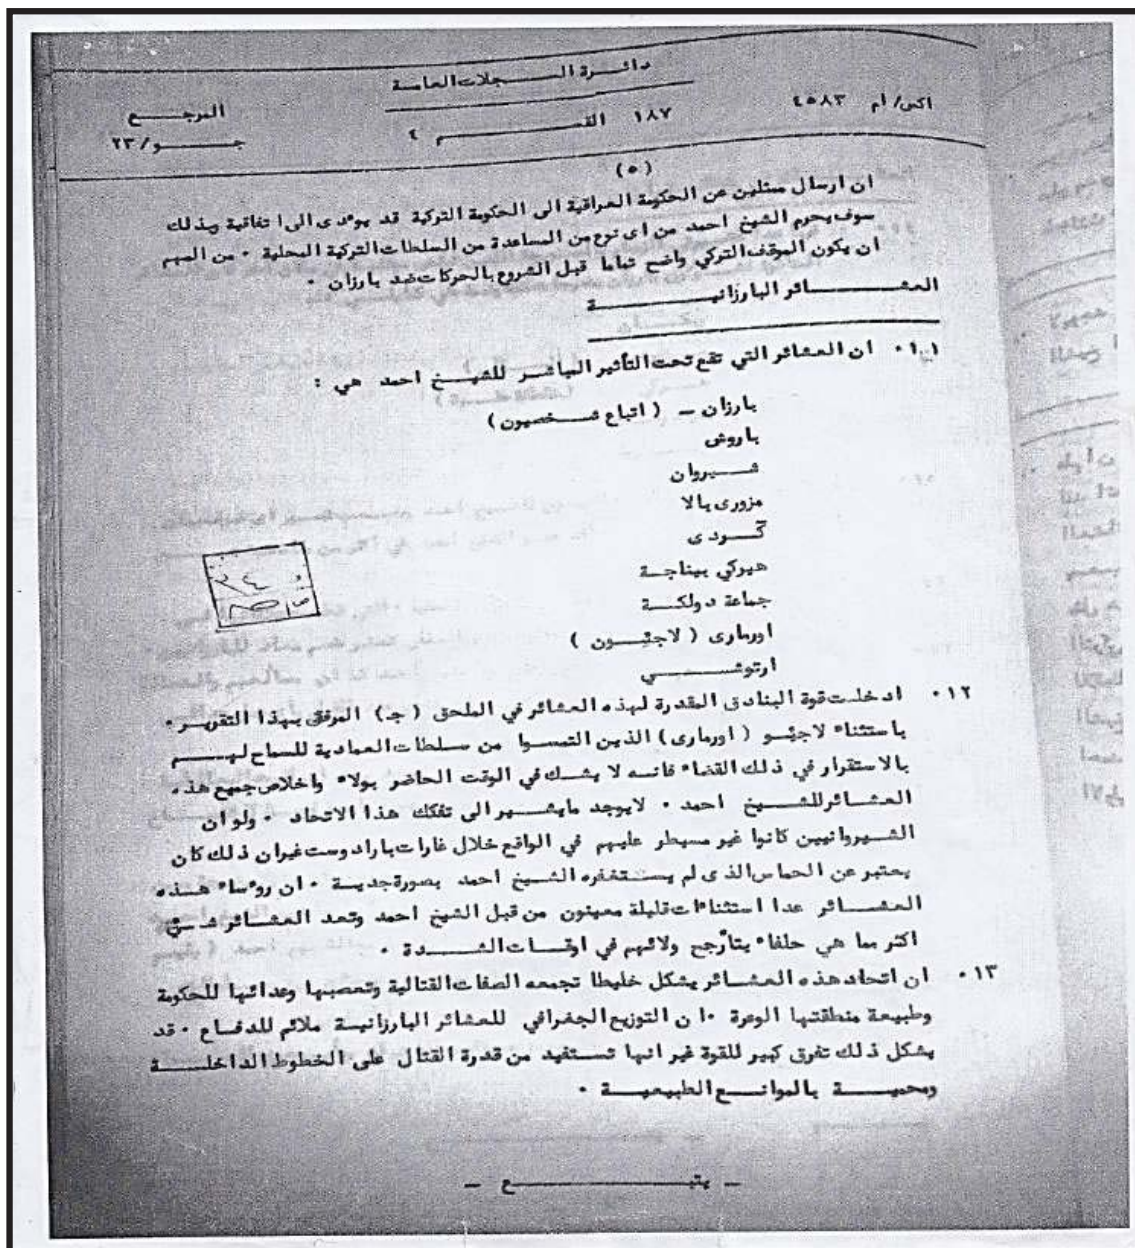 دائرة السجلات العامة
اكس/ ام ٤٥٨٣
١٨٧ القسم ٤
المرجع
جو/٢٣
(٥)
ان ارسال ممثلين عن الحكومة العراقية الى الحكومة التركية قد يوءدى الى اتفاقية وبذلك
سوف يحرم الشيخ احمد من اى نوع من المساعدة من السلطات التركية المحلية ٠ من المهم
ان يكون الموقف التركي واضح تماما قبل الشروع بالحركات ضد بارزان ٠
العشائر البارزانية
١١٠ ان العشائر التي تقع تحت التأثير المباشر للشيخ احمد هي :
بارزان – ( اتباع شخصيون )
باروش
شيروان
مزورى بالا
گردى
هيركي بيناجة
جماعة دولكة
اورمارى ( لاجئون )
ارتوشي
١٢٠ ادخلت قوة البنادق المقدرة لهذه العشائر في الملحق ( جـ ) المرفق بهذا التقرير ٠
باستثناء لاجئو ( اورمارى ) الذين التمسوا من سلطات العمادية للسماح لهم
بالاستقرار في ذلك القضاء فانه لا يشك في الوقت الحاضر بولاء واخلاص جميع هذه
العشائر للشيخ احمد ٠ لايوجد مايشير الى تفكك هذا الاتحاد ٠ ولو ان
الشيروانيين كانوا غير مسيطر عليهم في الواقع خلال غارات باراد وست غيران ذلك كان
يعتبر عن الحماس الذى لم يستغفره الشيخ احمد بصورة جدية ٠ ان روءساء هذه
العشائر عدا استثناءات قليلة معينون من قبل الشيخ احمد وتعد العشائر
اكثر مما هي حلفاء يتأرجح ولائهم في اوقات الشدة ٠
١٣٠ ان اتحاد هذه العشائر يشكل خليطا تجمعه الصفات القتالية وتعصبها وعدائها للحكومة
وطبيعة منطقتها الوعرة ٠ ان التوزيع الجغرافي للعشائر البارزانية ملائم للدفاع ٠ قد
يشكل ذلك تفرق كبير للقوة غير انها تستفيد من قدرة القتال على الخطوط الداخلة
ومحمية بالموانع الطبيعية ٠
– يتبع –